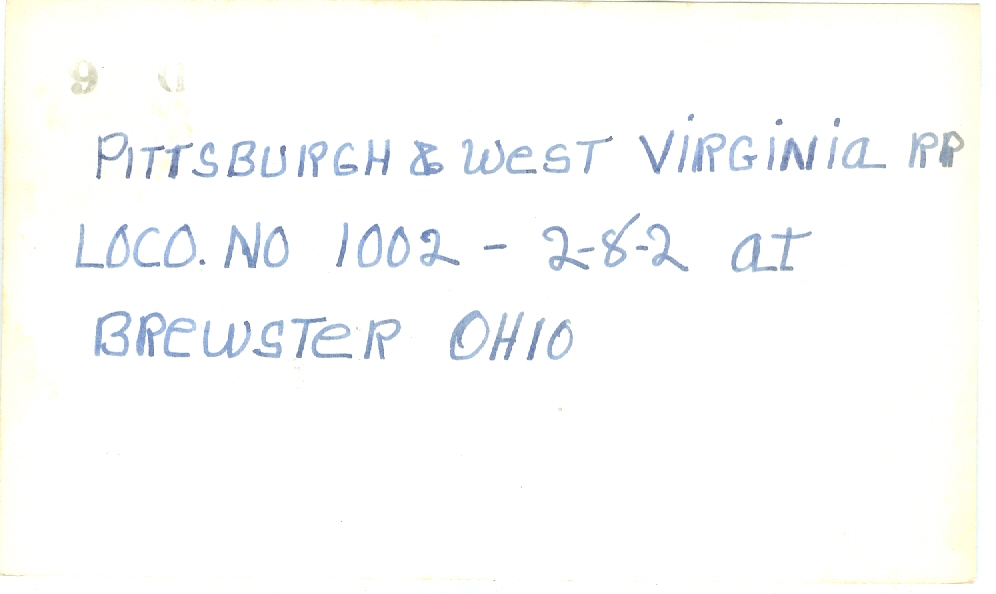 PITTSBURGH & WEST VIRGINIA RR
LOCO. NO 1002 - 2-8-2 at
BREWSTER OHIO